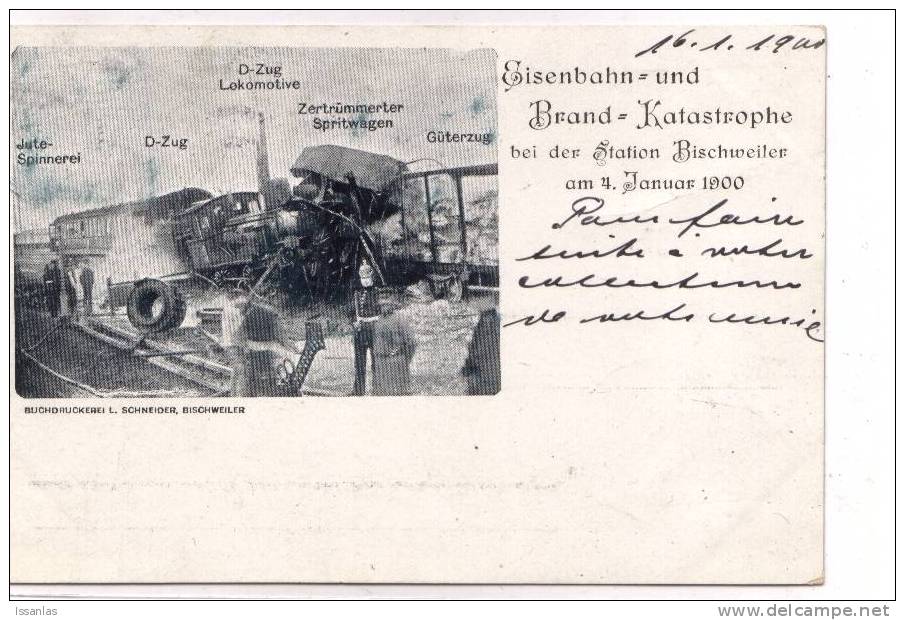 16.1.1900
Eisenbahn- und
Brand-Katastrophe
bei der Station Bischweiler
am 4. Januar 1900
Pour faire
suite à votre
collection
de votre amie
D-Zug
Lokomotive
Zertrümmerter
Spritwagen
Jute-
Spinnerei
D-Zug
Güterzug
BUCHDRUCKEREI L. SCHNEIDER, BISCHWEILER
Issanlas
www.delcampe.net